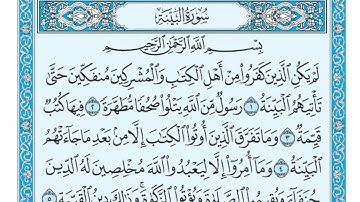 سُورَةُ البَيِّنَةِ
بِسْمِ اللَّهِ الرَّحْمَٰنِ الرَّحِيمِ
لَمْ يَكُنِ الَّذِينَ كَفَرُوا مِنْ أَهْلِ الْكِتَابِ وَالْمُشْرِكِينَ مُنفَكِّينَ حَتَّىٰ
تَأْتِيَهُمُ الْبَيِّنَةُ ١ رَسُولٌ مِّنَ اللَّهِ يَتْلُوا صُحُفًا مُّطَهَّرَةً ٢ فِيهَا كُتُبٌ
قَيِّمَةٌ ٣ وَمَا تَفَرَّقَ الَّذِينَ أُوتُوا الْكِتَابَ إِلَّا مِنْ بَعْدِ مَا جَاءَتْهُمُ
الْبَيِّنَةُ ٤ وَمَا أُمِرُوا إِلَّا لِيَعْبُدُوا اللَّهَ مُخْلِصِينَ لَهُ الدِّينَ
حُنَفَاءَ وَيُقِيمُوا الصَّلَاةَ وَيُؤْتُوا الزَّكَاةَ وَذَٰلِكَ دِينُ الْقَيِّمَةِ ٥